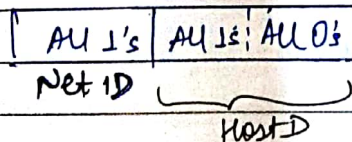 All 1's All 1s All 0's
Net ID
Host D